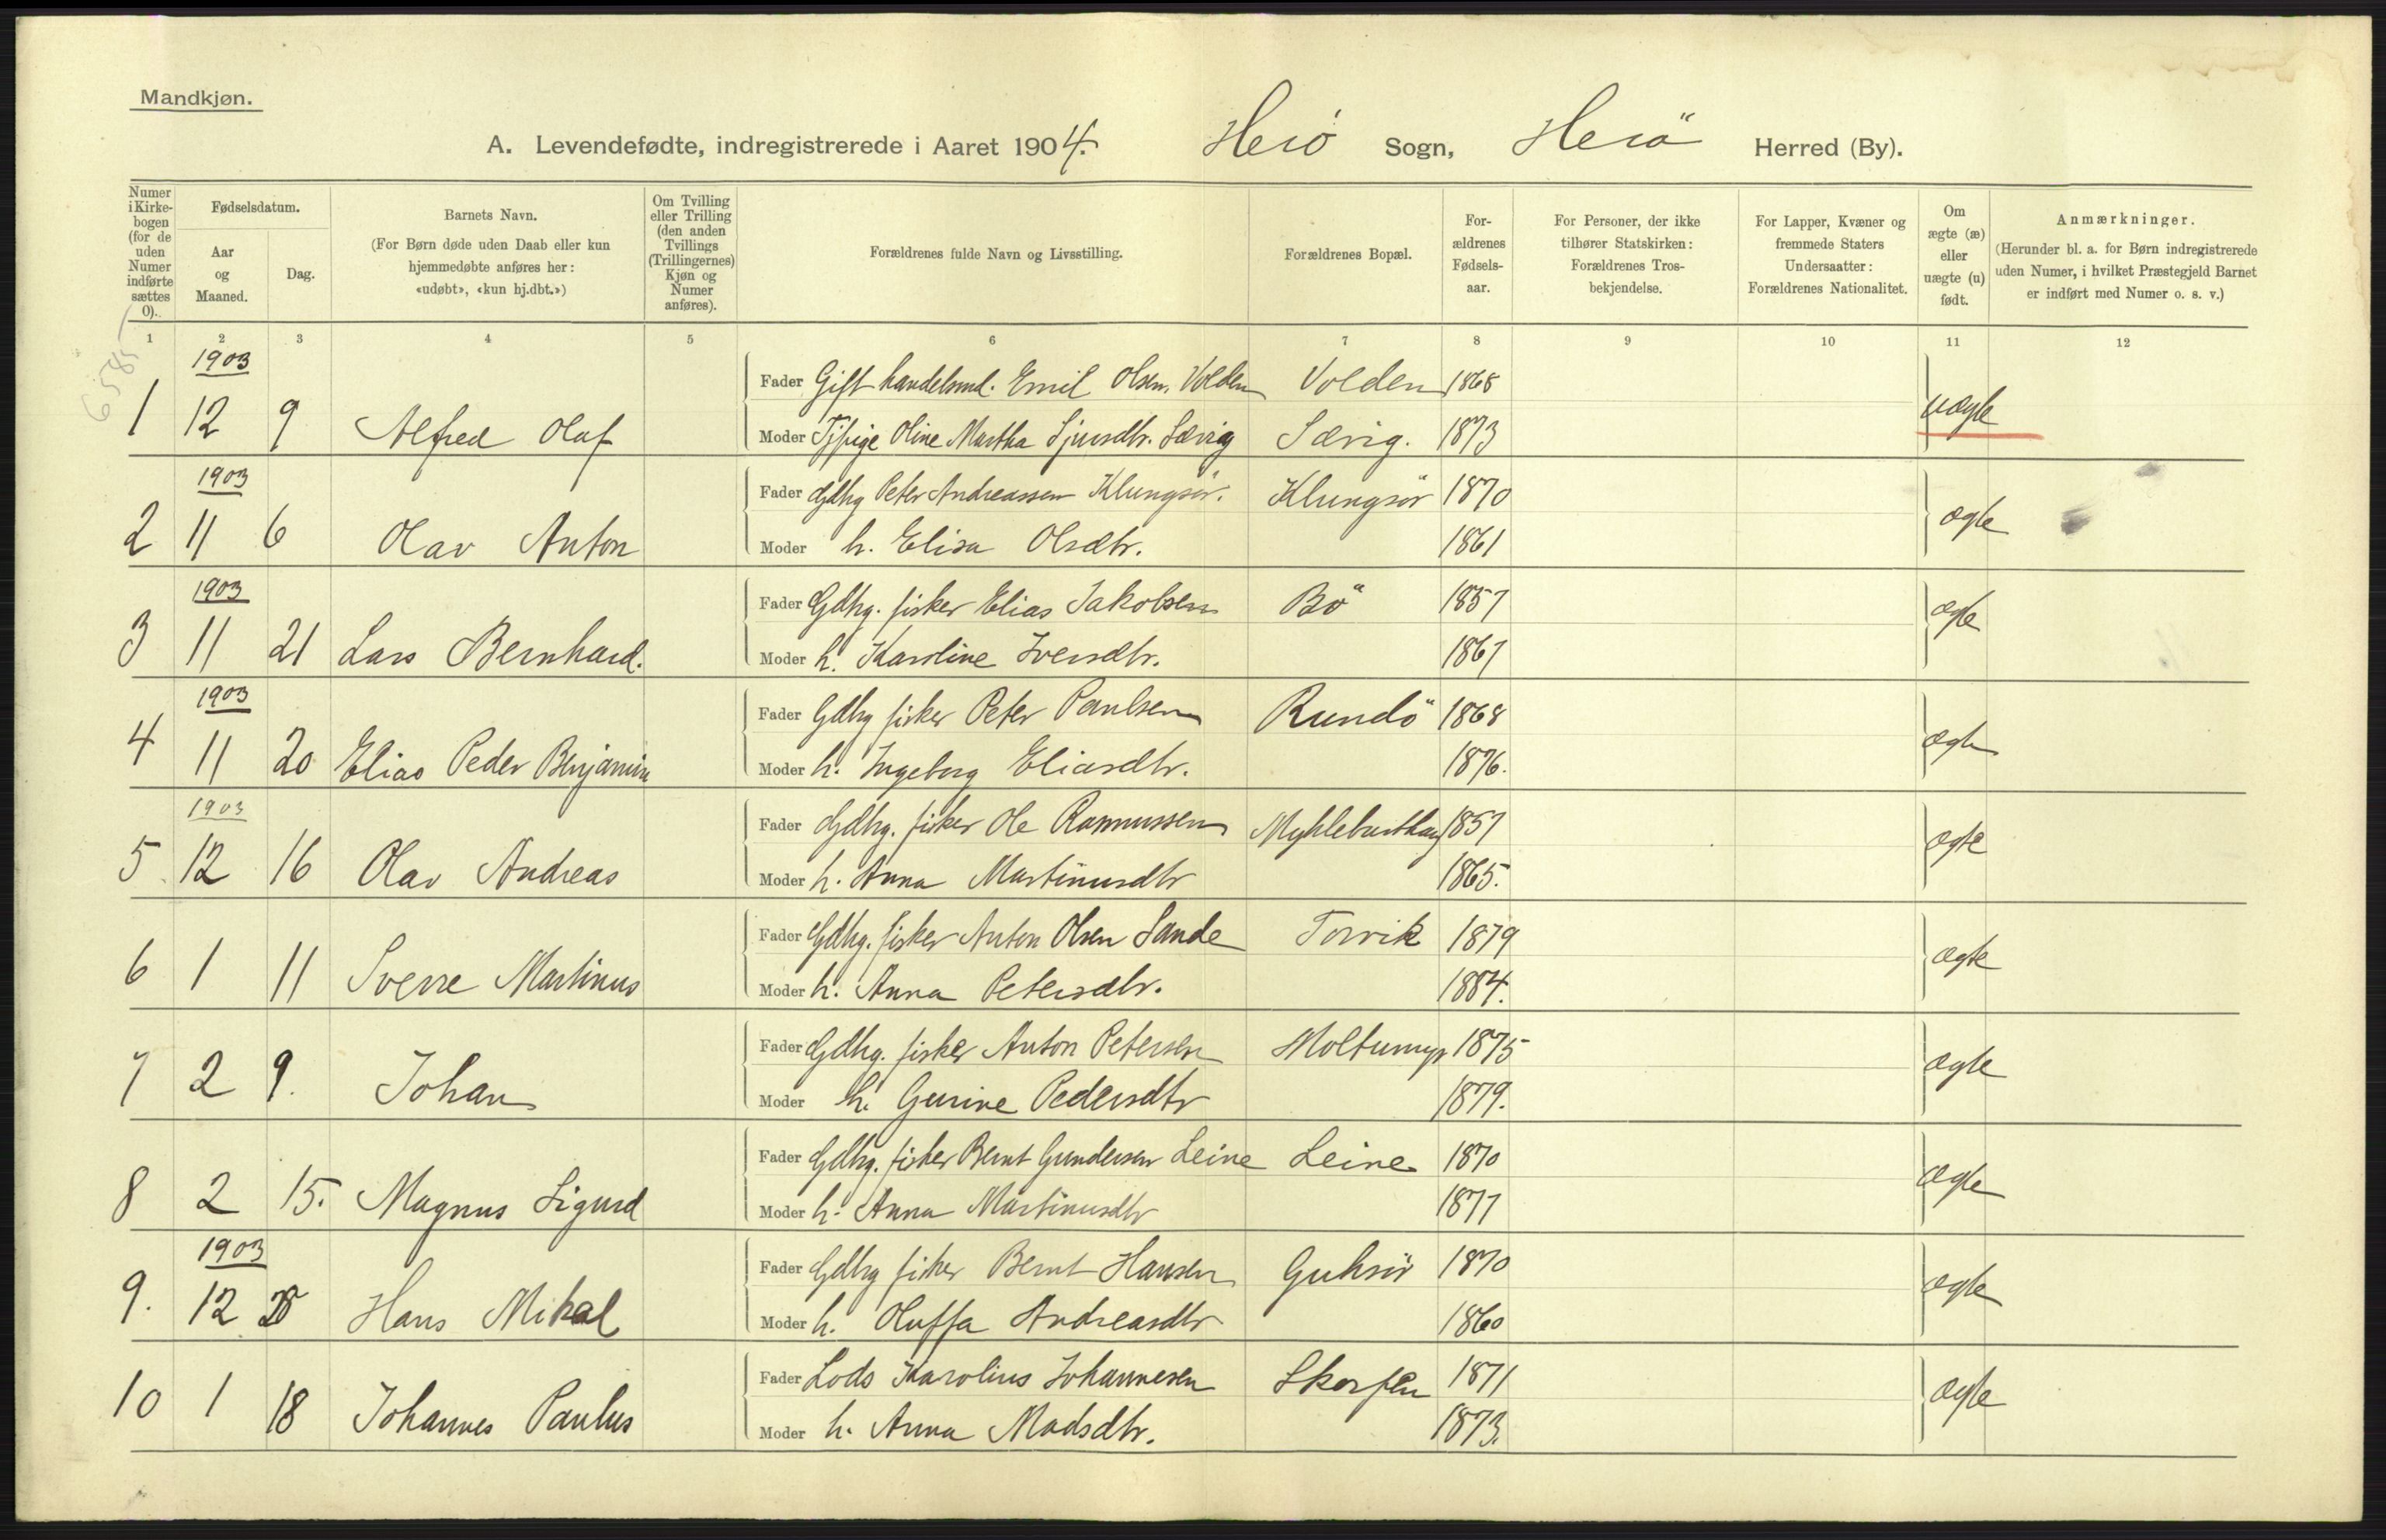 Mandkjøn.
A. Levendefødte, indregistrerede i Aaret 1904. Herö Sogn, Herö Herred (By).
Numer i Kirkebogen (for de uden Numer indførte sættes 0).
Fødselsdatum.
Aar og Maaned.
Dag.
Barnets Navn.
(For Børn døde uden Daab eller kun hjemmedøbte anføres her: «udøbt», «kun hj.dbt.»)
Om Tvilling eller Trilling (den anden Tvillings (Trillingernes) Kjøn og Numer anføres).
Forældrenes fulde Navn og Livsstilling.
Forældrenes Bopæl.
Forældrenes Fødselsaar.
For Personer, der ikke tilhører Statskirken: Forældrenes Trosbekjendelse.
For Lapper, Kvæner og fremmede Staters Undersaatter: Forældrenes Nationalitet.
Om ægte (æ) eller uægte (u) født.
Anmærkninger.
(Herunder bl. a. for Børn indregistrerede uden Numer, i hvilket Præstegjeld Barnet er indført med Numer o. s. v.)
1 2 3 4 5 6 7 8 9 10 11 12
6585
1903
Fader Gift handelsmd. Emil Olsen Volden Volden 1868
1 12 9 Alfred Olaf Moder Tjpige Oline Martha Sjursdtr. Særig Særig. 1873 uægte
1903
Fader Gdbrg Peter Andreassen Klungsör. Klungsör 1870
2 11 6 Olav Anton Moder h. Elisa Olsdtr. 1861 ægte
1903
Fader Gdbrg. fisker Elias Jakobsen Bö 1857
3 11 21 Lars Bernhard. Moder h. Karoline Iversdtr. 1867 ægte
1903
Fader Gdbrg fisker Peter Paulsen Rundö 1868
4 11 20 Elias Peder Benjamin Moder h. Ingeborg Eliasdtr. 1876. ægte
1903
Fader Gdbrg. fisker Ole Rasmussen Myklebusthaug 1857
5 12 16 Olav Andreas Moder h. Anna Martinusdtr 1865. ægte
Fader Gdbrg. fisker Anton Olsen Sande Torvik 1879
6 1 11 Sverre Martinus Moder h. Anna Petersdtr. 1884. ægte
Fader Gdbrg. fisker Anton Petersen Moltumyr 1875
7 2 9. Johan Moder h. Gurine Pedersdtr 1879. ægte
Fader Gdbrg. fisker Bernt Gundersen Leine Leine 1870
8 2 15. Magnus Sigurd Moder h. Anna Martinusdtr 1877 ægte
1903
Fader Gdbrg fisker Bernt Hansen 1870
9. 12 Hans Mikal Moder h. Oluffa Andreasdtr 1860 ægte
Fader Lods Karolius Johannesen Skorpen 1871
10 1 18 Johannes Paulus Moder h. Anna Madsdtr. 1873. ægte